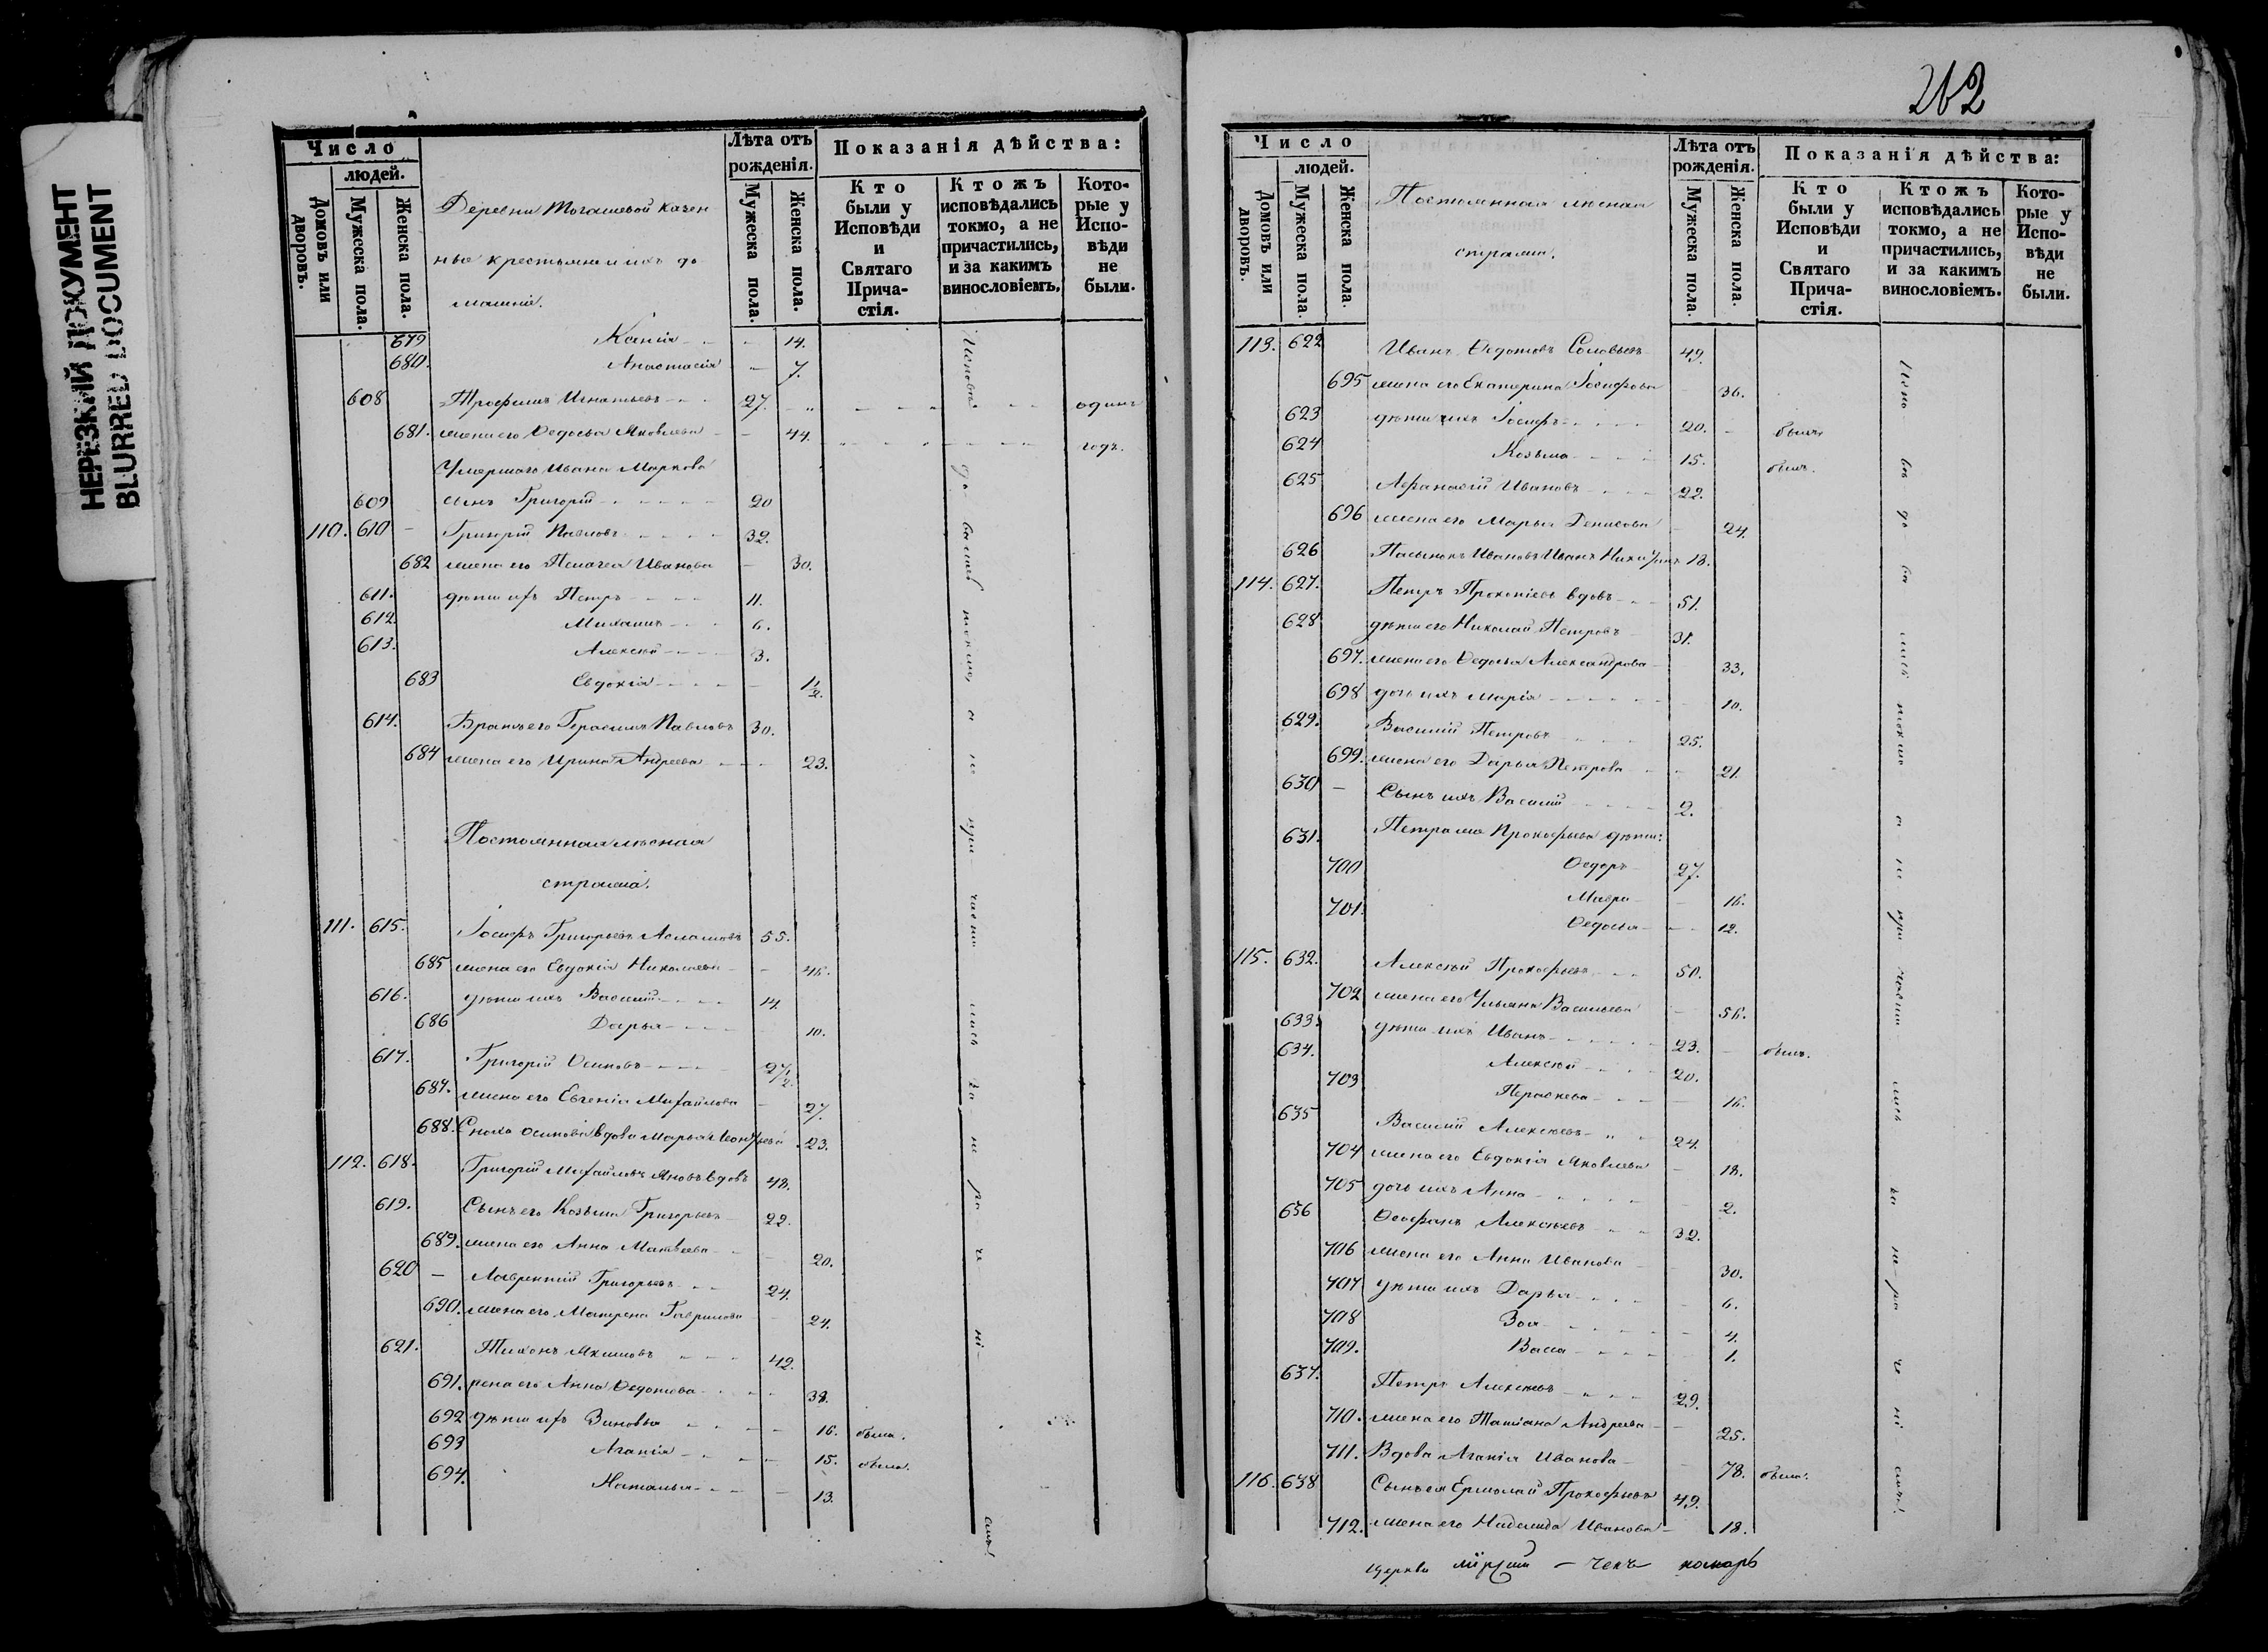 НЕРЕЗКИЙ ДОКУМЕНТ
BLURRED DOCUMENT
Число
людей.
Домовъ или дворовъ.
Мужеска пола.
Женска пола.
Деревни Тогашевой казен
ные крестьяне и ихъ до
машнiе.
Лѣта отъ рожденія.
Мужеска пола.
Женска пола.
Показанія дѣйства:
Кто были у Исповѣди и Святаго Прича-стія.
Ктожъ исповѣдались токмо, а не причастились, и за какимъ винословіемъ.
Кото-рые у Испо-вѣди не были.
679 Ксенія 14.
680. Анастасія 7.
608 Трофимъ Игнатьевъ 27. одинъ
681. жена его Ѳедосья Яковлева 44. годъ.
Умершаго Ивана Маркова
609 сынъ Григорій 20
110. 610 Григорій Павловъ 32.
682 жена его Пелагея Иванова 30.
611. дѣти ихъ Петръ 11.
612. Михаилъ 6.
613. Алексѣй 3.
683 Евдокія 1/2.
614. Братъ его Герасимъ Павловъ 30.
684 жена его Ирина Андреева 23.
Постоянная лѣсная
стража.
111. 615. Іосифъ Григорьевъ 55.
685 жена его Евдокія Николаева 46.
616. дѣти ихъ Василій 14.
686 Дарья 10.
617. Григорій Осиповъ 27 1/2.
687. жена его Евгенія Михайлова 27.
688. Сноха Осипова вдова Марья 23.
112. 618. Григорій Михайловъ вдовъ 48.
619. Сынъ его Козьма Григорьевъ 22.
689. жена его Анна Матвѣева 20.
620 Лаврентій Григорьевъ 24.
690. жена его Матрена Гаврилова 24.
621. Тихонъ Якимовъ 42.
691. жена его Анна Ѳедотова 38.
692 дѣти ихъ Зиновья 16. была.
693 Агапія 15. была.
694. Наталья 13.
Исповѣдовались токмо, а не причастились за нераченіемъ.
262
Число
людей.
Домовъ или дворовъ.
Мужеска пола.
Женска пола.
Постоянная лѣсная
стража.
Лѣта отъ рожденія.
Мужеска пола.
Женска пола.
Показанія дѣйства:
Кто были у Исповѣди и Святаго Прича-стія.
Ктожъ исповѣдались токмо, а не причастились, и за какимъ винословіемъ.
Кото-рые у Испо-вѣди не были.
113. 622 Иванъ Ѳедотовъ Соловьевъ 49.
695 жена его Екатерина Іосифова 36.
623 дѣти ихъ Іосифъ 20. былъ
624 Козьма 15. былъ.
625 Аѳанасій Ивановъ 22.
696 жена его Марья Денисова 24.
626 Пасынокъ Ивановъ Иванъ 18.
114. 627. Петръ Прокопіевъ вдовъ 51.
628 дѣти его Николай Петровъ 31.
697. жена его Ѳедосья Александрова 33.
698 дочь ихъ Марія 10.
629. Василій Петровъ 25.
699. жена его Дарья Петрова 21.
630 Сынъ ихъ Василій 2.
631. Петра же Прокофьева дѣти:
700 Ѳедоръ 27.
Мавра 16.
701. Ѳедосья 12.
115. 632. Алексѣй Прокофьевъ 50.
702 жена его Ульяна Васильева 56.
633. дѣти ихъ Иванъ 23. былъ.
634. Алексѣй 20.
703 Параскева 16.
635 Василій Алексѣевъ 24.
704 жена его Евдокія Яковлева 18.
705 дочь ихъ Анна 2.
636 Ѳеофанъ Алексѣевъ 32.
706 жена его Анна Иванова 30.
707 дѣти ихъ Дарья 6.
708 Зоя 4.
709. Васса 1.
637. Петръ Алексѣевъ 29.
710. жена его Татіана Андреева 25.
711. Вдова Агапія Иванова 78. была.
116. 638 Сынъ ея Ермолай Прокофьевъ 49.
712. жена его Надежда Иванова 18.
Исповѣдовались токмо а не причастились за нераченіемъ.
церкви